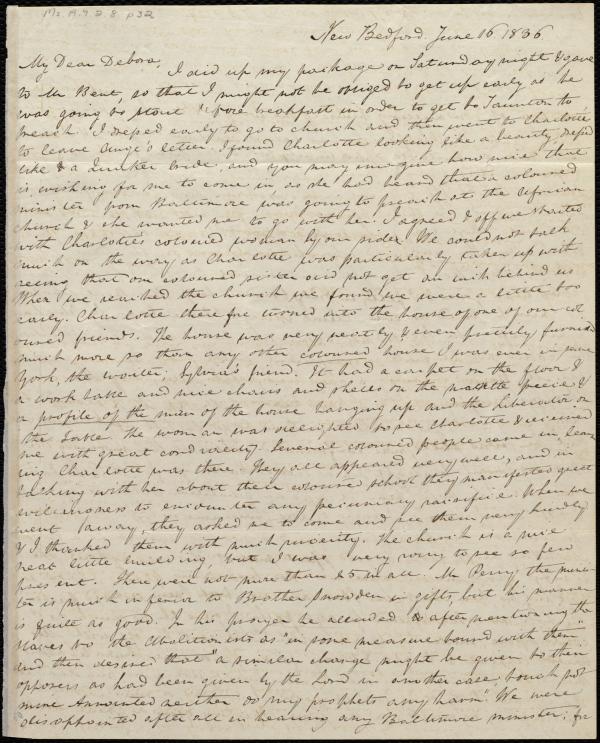 Ms. A.9.2.8 p32
New Bedford. June 16 1836
My Dear Debora,
I did up my package on Saturday night & gave
to Mr Bent, so that I might not be obliged to get up early as he
was going to start before breakfast in order to get to Taunton to
preach. I dressed early to go to church and then went to Charlotte's
to leave Anne's letter. I found Charlotte looking like a beauty, dressed
like a Quaker bride, and you may imagine how nice that
is wishing for me to come in, as she had heard that a coloured
minister from Baltimore was going to preach at the African
church & she wanted me to go with her. I agreed & off we started
with Charlotte's coloured woman by our sides. We could not talk
much on the way as Charlotte was particularly taken up with
seeing that our coloured sister did not get an inch behind us
When we reached the church we found we were a little too
early. Charlotte therefore turned into the house of one of our col
oured friends. The house was very neatly & even prettily furnished
much more so than any other coloured house I was ever in save
York, the waiter. It had a carpet on the floor &
a work table and nice chairs and shells on the mantle piece &
a profile of the man of the house hanging up and the Liberator on
the table the woman was delighted to see Charlotte & received
me with great cordiality. Several coloured people came in, hear
ing Charlotte was there. They all appeared very well, and in
talking with her about their coloured school they manifested great
willingness to encounter any pecuniary sacrifice. When we
went away, they asked me to come and see them very kindly
& I thanked them with much sincerity. The church is a nice
neat little building, but I was very sorry to see so few
present. There were not more than 25 in all. Mr Perry the minis
ter is much inferior to Brother Snowden in gifts, but his manner
is quite as good. In his prayer he alluded after mentioning the
slaves to the Abolitionists as "in some measure bound with them"
and then desired that "a similar change might be given to their
opposers as had been given by the Lord in another case, touch not
mine Annointed neither do my prophets any harm". We were
disappointed after all in hearing any Baltimore minister; for